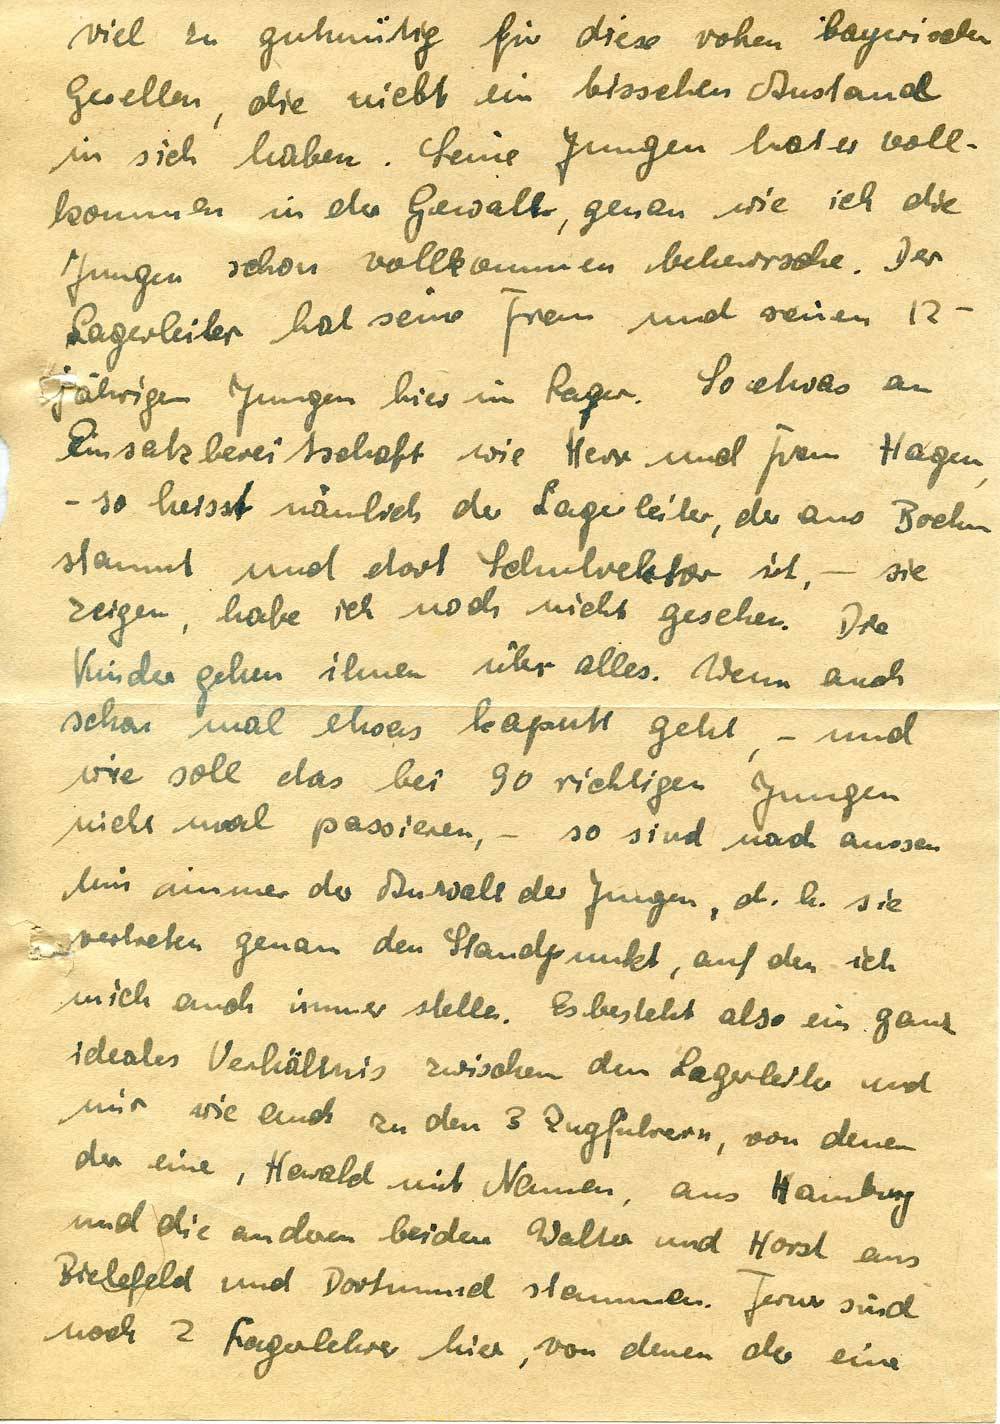 viel zu gutmütig für diese rohen bayrischen
Gesellen, die nicht ein bisschen Anstand
in sich haben. Seine Jungen hat er voll-
kommen in der Gewalt, genau wie ich die
Jungen schon vollkommen beherrsche. Der
Lagerleiter hat seine Frau und seinen 12-
jährigen Jungen hier im Lager. So etwas an
Einsatzbereitschaft wie Herr und Frau Hagen,
- so heisst nämlich der Lagerleiter, der aus Bochum
stammt und dort Schulrektor ist, - sie
zeigen, habe ich noch nicht gesehen. Die
Kinder gehen ihnen über alles. Wenn auch
schon mal etwas kaputt geht, - und
wie soll das bei 90 richtigen Jungen
nicht mal passieren, - so sind nach aussen
hin immer der Anwalt der Jungen, d. h. sie
vertreten genau den Standpunkt, auf den ich
mich auch immer stelle. Es besteht also ein ganz
ideales Verhältnis zwischen dem Lagerleiter und
mir wie auch zu den 3 Zugführern, von denen
der eine, Harald mit Namen, aus Hamburg
und die anderen beiden Walter und Horst aus
Bielefeld und Dortmund stammen. Ferner sind
noch 2 Lagerlehrer hier, von denen der eine